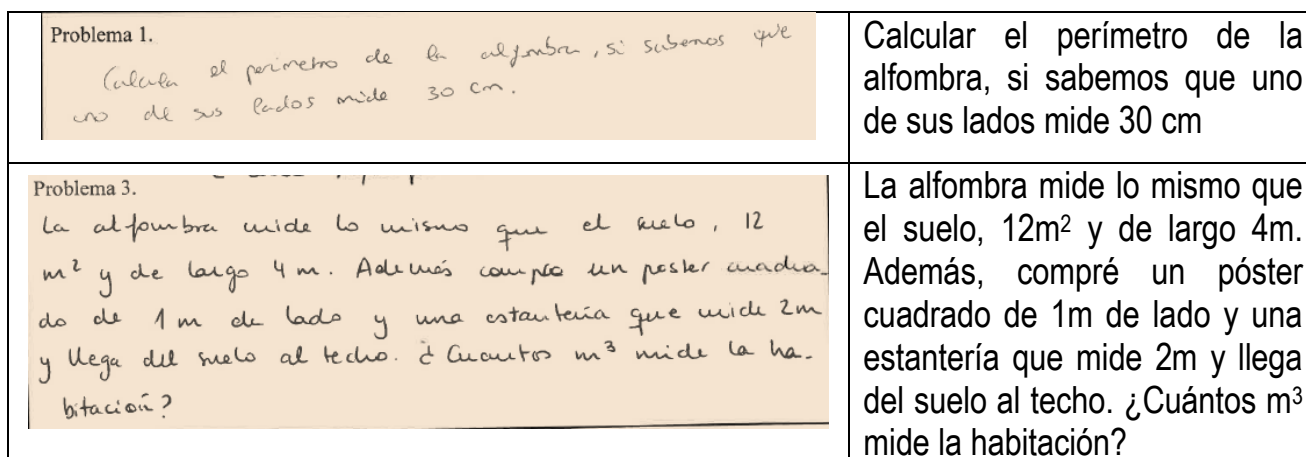 Problema 1.
Calcula el perimetro de la alfombra, si sabemos que
uno de sus lados mide 30 cm.
Calcular el perímetro de la
alfombra, si sabemos que uno
de sus lados mide 30 cm
Problema 3.
La alfombra mide lo mismo que el suelo, 12
m² y de largo 4 m. Además compro un poster cuadra-
do de 1 m de lado y una estantería que mide 2m
y llega del suelo al techo. ¿Cuantos m³ mide la ha-
bitación?
La alfombra mide lo mismo que
el suelo, 12m² y de largo 4m.
Además, compré un póster
cuadrado de 1m de lado y una
estantería que mide 2m y llega
del suelo al techo. ¿Cuántos m³
mide la habitación?